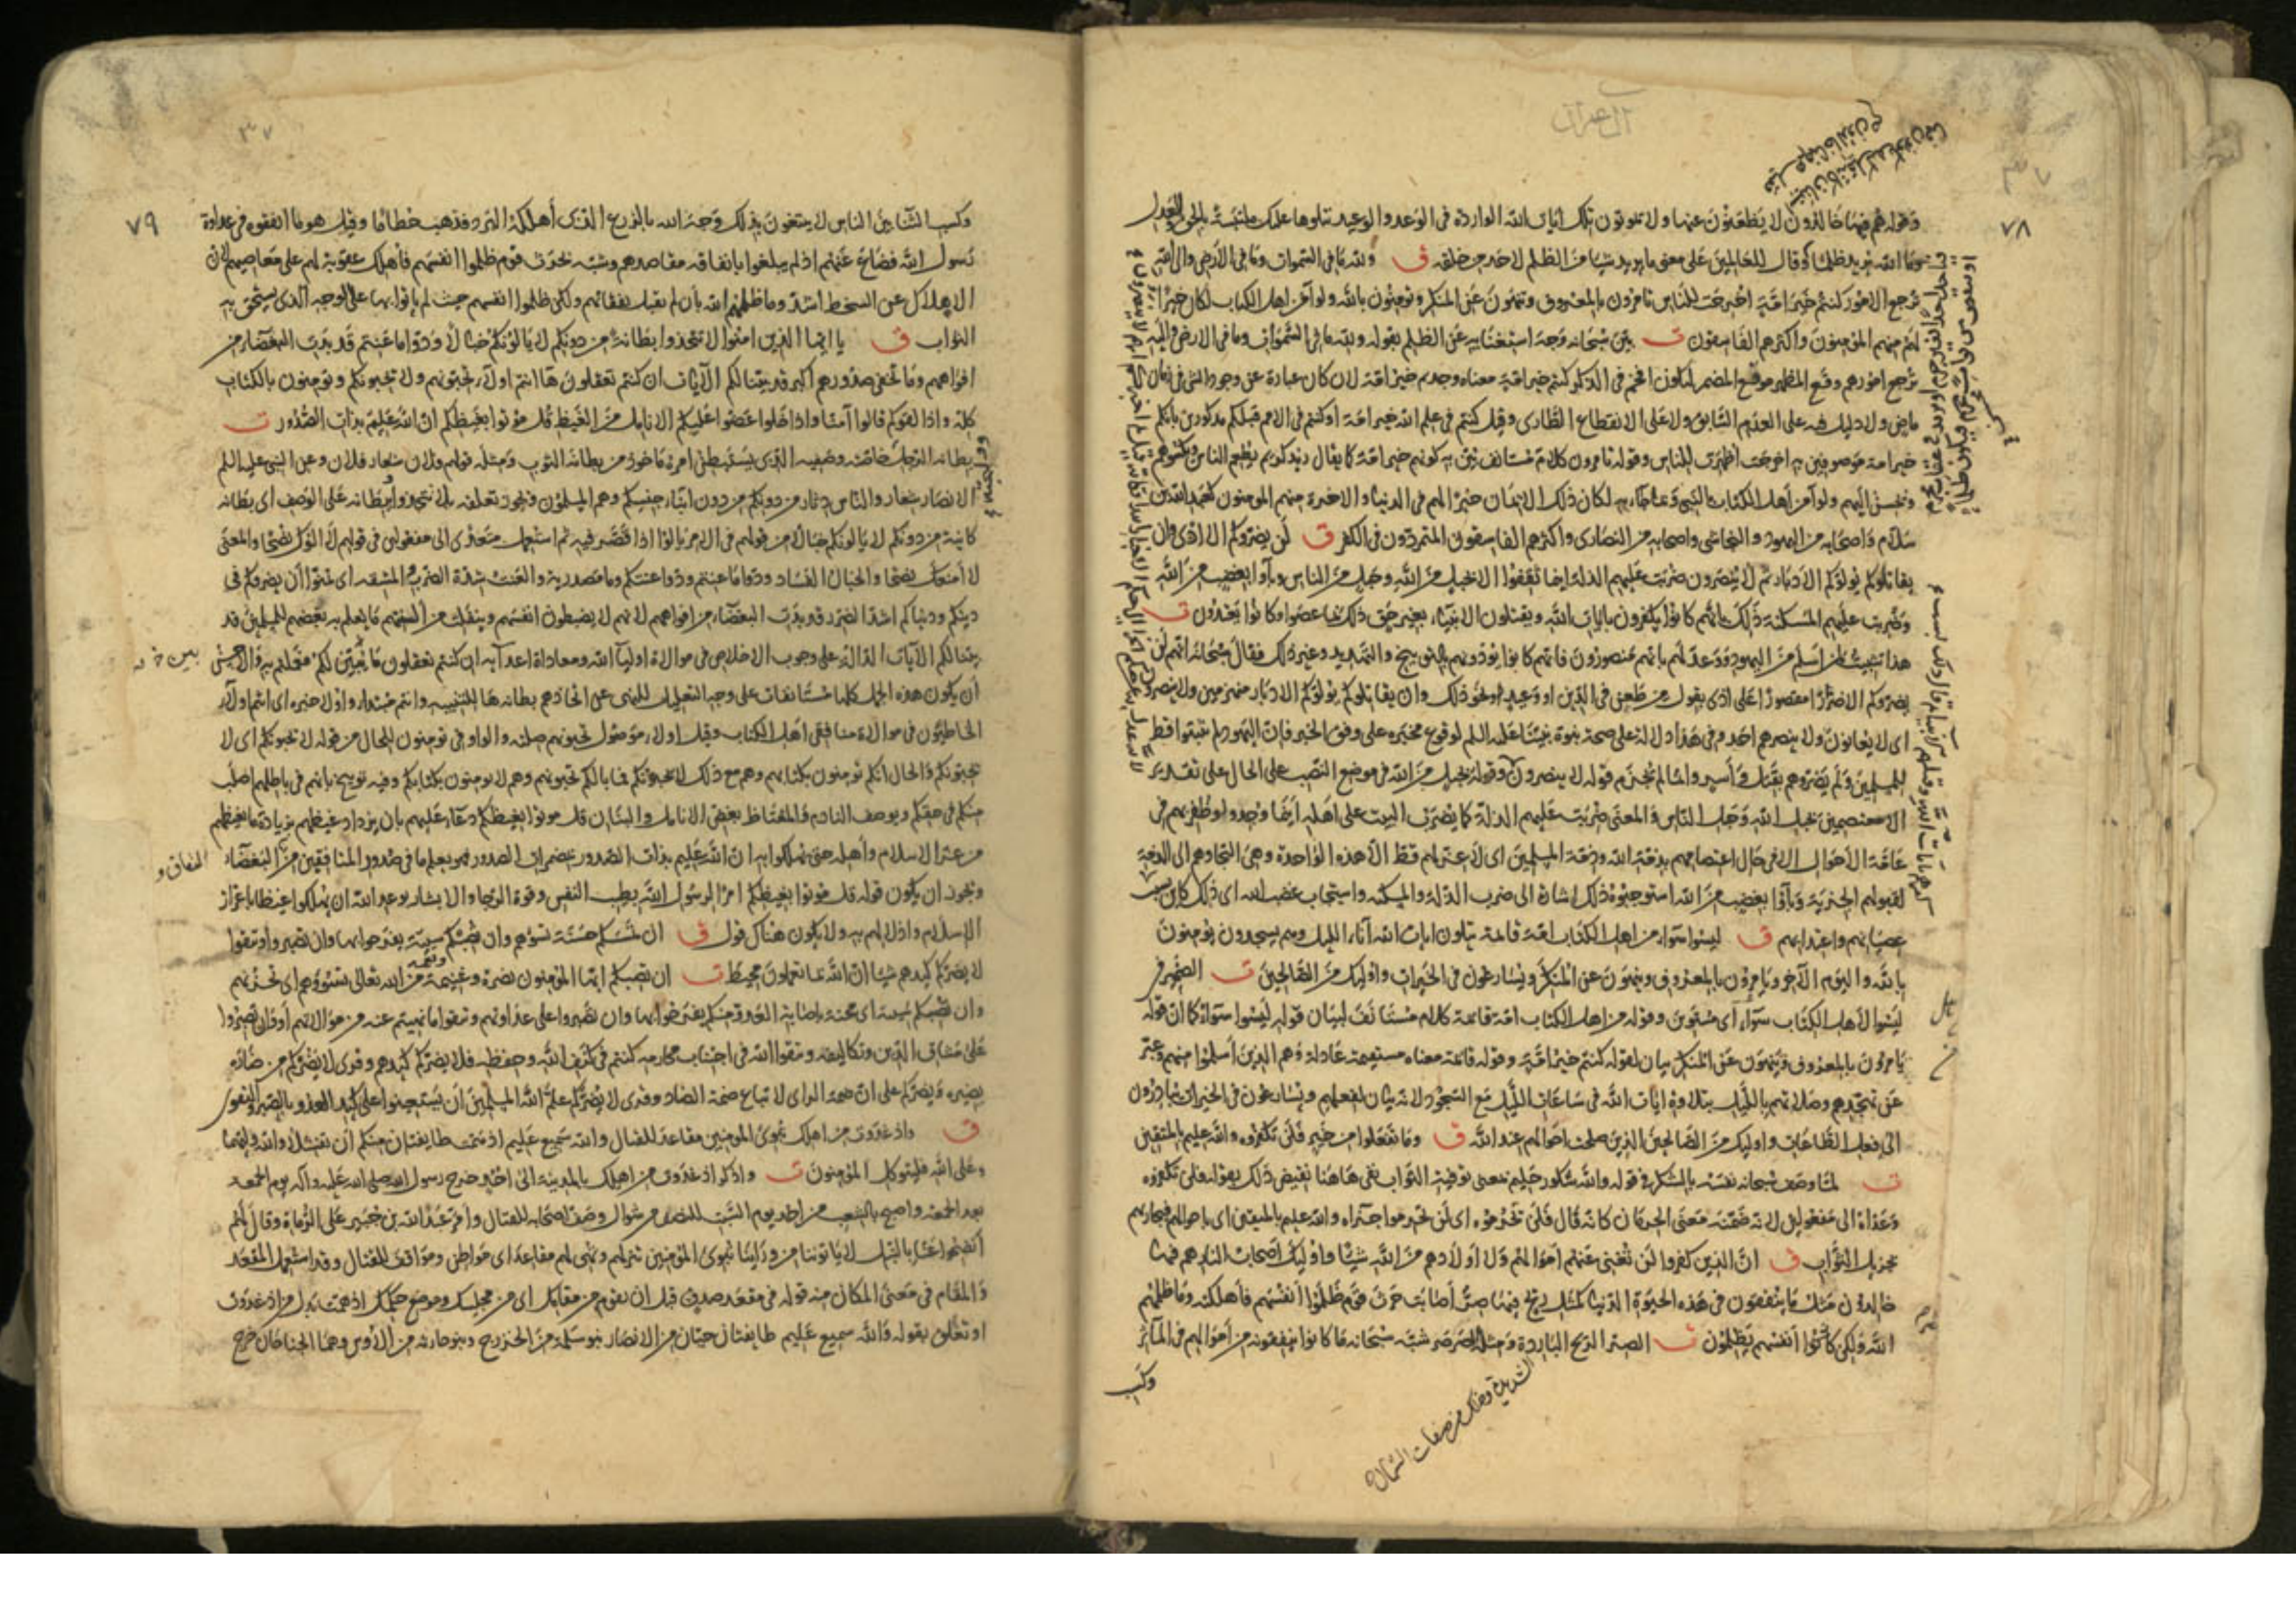 آل عمران
٧٨
وقوله هم فيها خالدون لا يظعنون عنها ولا يموتون تلك ايات الله الواردة في الوعد والوعيد نتلوها عليك ملتبسة بالحق والعدل
وما الله يريد ظلما وقال للعالمين على معنى ما يريد شيئا من الظلم لاحد من خلقه ق ولله ما في السموات وما في الأرض والى الله
ترجع الامور كنتم خير امة اخرجت للناس تامرون بالمعروف وتنهون عن المنكر وتومنون بالله ولو آمن اهل الكتاب لكان خيرا
لهم منهم المؤمنون واكثرهم الفاسقون ت بين سبحانه وجه استغنائه عن الظلم بقوله ولله ما في السموات وما في الارض واليه
ترجع امورهم وقع المظهر موقع المضمر ليكون افخم في الذكر كنتم خير امة معناه وجدتم خير امة لان كان عبارة عن وجود الشي في زمان
ماض ولا دليل فيه على العدم السابق ولا على الانقطاع الطاري وقيل كنتم في علم الله خير امة او كنتم في الامم قبلكم مذكورين بانكم
خير امة موصوفين به اخرجت اظهرت للناس وقوله تامرون كلام مستانف بين به كونهم خير امة كما يقال زيد كريم يطعم الناس ويكسوهم
ويحسن اليهم ولو آمن اهل الكتاب بالنبي وبما جاء به لكان ذلك الايمان خيرا لهم في الدنيا والاخرة منهم المومنون كعبد الله بن
سلام واصحابه من اليهود والنجاشي واصحابه من النصارى واكثرهم الفاسقون المتمردون في الكفر ق لن يضروكم الا اذى وان
يقاتلوكم يولوكم الادبار ثم لا ينصرون ضربت عليهم الذلة اينما ثقفوا الا بحبل من الله وحبل من الناس وبآوا بغضب من الله
وضربت عليهم المسكنة ذلك بانهم كانوا يكفرون بايات الله ويقتلون الانبياء بغير حق ذلك بما عصوا وكانوا يعتدون ت
هذا تثبيت لمن اسلم من اليهود ووعد لهم بانهم منصورون فانهم كانوا يؤذونهم بالتوبيخ والتهديد وغير ذلك فقال سبحانه انهم لن
يضروكم الا ضررا مقصورا على اذى بقول من طعن في الدين او وعيد او نحو ذلك وان يقاتلوكم يولوكم الادبار منهزمين ولا يضروكم
اى لا يعانون ولا ينصرهم احد وفي هذا دلالة على صحة نبوة نبينا عليه السلم لوقوع مخبره على وفق الخبر فان اليهود لم يثبتوا قط
للمسلمين ولم يضروهم بقتل واسر وانما لم يجزم قوله لا ينصرون وقوله بحبل من الله في موضع النصب على الحال على تقدير
الا معتصمين بحبل الله وحبل الناس والمعنى ضربت عليهم الذلة كما يضرب البيت على اهله اينما وجدوا وظفر بهم في
عامة الاحوال الا في حال اعتصامهم بذمة الله وذمة المسلمين اى لا عز لهم قط الا هذه الواحدة وهي التجاؤهم الى الذمة
لقبولهم الجزية وبآؤا بغضب من الله استوجبوه ذلك اشارة الى ضرب الذلة والمسكنة واستيجاب غضب الله اى ذلك كاين بسبب
عصيانهم واعتدائهم ق ليسوا سواء من اهل الكتاب امة قائمة يتلون ايات الله آناء الليل وهم يسجدون يؤمنون
بالله واليوم الآخر ويامرون بالمعروف وينهون عن المنكر ويسارعون في الخيرات واوليك من الصالحين ت الضمير في
ليسوا لاهل الكتاب سوآء اى مستوين وقوله من اهل الكتاب امة قائمة كلام مستانف لبيان قوله ليسوا سواء كما ان قوله
يامرون بالمعروف وينهون عن المنكر بيان لقوله كنتم خير امة وقوله قائمة معناه مستقيمة عادلة وهم الذين اسلموا منهم وعبر
عن تهجدهم وصلاتهم بالليل بتلاوة ايات الله في ساعات الليل مع السجود لانه بيان لفعلهم ويسارعون في الخيرات يبادرون
الى فعل الطاعات واوليك من الصالحين الذين صلحت احوالهم عند الله ق وما تفعلوا من خير فلن تكفروه والله عليم بالمتقين
ت لما وصف سبحانه نفسه بالشكر في قوله والله شكور حليم بمعنى توفية الثواب نفى هاهنا نقيض ذلك بقوله فلن تكفروه
وعداه الى مفعولين لانه ضمنه معنى الحرمان كانه قال فلن تحرموه اى لن تحرموا جزاءه والله عليم بالمتقين اى باحوالهم فيجازيهم
بجزيل الثواب ق ان الذين كفروا لن تغني عنهم اموالهم ولا اولادهم من الله شيئا واوليك اصحاب النار هم فيها
خالدون مثل ما ينفقون في هذه الحيوة الدنيا كمثل ريح فيها صر اصابت حرث قوم ظلموا انفسهم فاهلكته وما ظلمهم
الله ولكن كانوا انفسهم يظلمون ت الصر الريح الباردة ومثله الصرصر شبه سبحانه ما كانوا ينفقونه من اموالهم في المآثر
الشديدة وهلك من صفات الشمال
وكسب
٧٩
وكسب الثناء بين الناس لا يبتغون بذلك وجه الله بالزرع الذي أهلكه البرد فذهب حطاما وقيل هو ما انفقوه في عداوة
رسول الله فضاع عنهم اذ لم يبلغوا بانفاقه مقاصدهم وشبه بحرث قوم ظلموا انفسهم فأهلك عقوبة لهم على معاصيهم لان
الاهلاك عن السخط اشد وما ظلمهم الله بأن لم تقبل نفقاتهم ولكن ظلموا انفسهم حيث لم ياتوا بها على الوجه الذي يستحق به
الثواب ق يا ايها الذين امنوا لا تتخذوا بطانة من دونكم لا يالونكم خبالا ودوا ما عنتم قد بدت البغضاء من
افواههم وما تخفي صدورهم اكبر قد بينا لكم الآيات ان كنتم تعقلون ها انتم اولاء تحبونهم ولا يحبونكم وتومنون بالكتاب
كله واذا لقوكم قالوا آمنا واذا خلوا عضوا عليكم الانامل من الغيظ قل موتوا بغيظكم ان الله عليم بذات الصدور ت
بطانة الرجل خاصته وصفيه الذي يستبطن امره ماخوذ من بطانة الثوب ومثله قولهم فلان شعار فلان وعن النبي عليه السلم
الانصار شعار والناس دثار من دونكم من دون ابناء جنسكم وهم المسلمون ويجوز تعلقه بلا تتخذوا وببطانة على الوصف اى بطانة
كاينة من دونكم لا يالونكم خبالا من قولهم في الامر يالوا اذا قصر فيه ثم استعمل متعدى الى مفعولين في قولهم لا آلوك نصحا والمعنى
لا أمنعك نصحا والخبال الفساد ودوا ما عنتم ودوا عنتكم وما مصدرية والعنت شدة الضرر والمشقة اى تمنوا أن يضروكم في
دينكم ودنياكم اشد الضرر قد بدت البغضاء من افواههم لانهم لا يضبطون انفسهم وينفلت من السنتهم ما يعلم به بغضهم للمسلمين قد
بينا لكم الآيات الدالة على وجوب الاخلاص في موالاة اوليآء الله ومعاداة اعدآئه ان كنتم تعقلون ما يبين لكم فعملتم به والاحسن
أن يكون هذه الجمل كلها مستانفات على وجه التعليل للنهي عن اتخاذهم بطانة ها للتنبيه وانتم مبتدا واولاء خبره اى انتم اولآء
الخاطيون في موالاة منافقي اهل الكتاب وقيل اولاء موصول تحبونهم صلته والواو في تومنون للحال من قوله لا يحبونكم اى لا
يحبونكم والحال انكم تومنون بكتابهم وهم مع ذلك لا يحبونكم فما بالكم تحبونهم وهم لا يومنون بكتابكم وفيه توبيخ بانهم في باطلهم اصلب
منكم في حقكم ويوصف النادم والمغتاظ بعض الانامل والبنان قل موتوا بغيظكم دعآء عليهم بان يزداد غيظهم بزيادة ما يغيظهم
من عز الاسلام وأهله حتى يهلكوا به ان الله عليم بذات الصدور بمضمرات الصدور فهو يعلم ما في صدور المنافقين من البغضاء
النفاق و
ويجوز ان يكون قوله قل موتوا بغيظكم امرا لرسول الله بطيب النفس وقوة الرجاء والاستبشار بوعد الله ان يهلكوا غيظا باعزاز
الاسلام واذلالهم به ولا يكون هناك قول ق ان تمسكم حسنة تسؤهم وان تصبكم سيئة يفرحوا بها وان تصبروا وتتقوا
لا يضركم كيدهم شيئا ان الله بما يعملون محيط ت ان تصبكم ايها المؤمنون نصرة وغنيمة ونعمة من الله تعالى تسؤهم اى تحزنهم
وان تصبكم سيئة اى محنة باصابة العدو منكم يفرحوا بها وان تصبروا على عداوتهم وتتقوا ما نهيتم عنه من موالاتهم أو وان تصبروا
على مشاق الدين وتكاليفه وتتقوا الله في اجتناب محارمه كنتم في كنف الله وحفظه فلا يضركم كيدهم وقرى لا يضركم من ضاره
يضيره ويضركم على ان ضمة الراى لاتباع ضمة الضاد وقرى لا يضركم علم الله المسلمين أن يستعينوا على كيد العدو بالصبر والتقوى
ق واذ غدوت من اهلك تبوئ المومنين مقاعد للقتال والله سميع عليم اذ همت طايفتان منكم أن تفشلا والله وليهما
وعلى الله فليتوكل المؤمنون ت واذكر اذ غدوت من اهلك بالمدينة الى احد خرج رسول الله صلى الله عليه وآله يوم الجمعة
بعد الجمعة واصبح بالشعب من احد يوم السبت للنصف من شوال وصف اصحابه للقتال وامر عبد الله بن جبير على الرماة وقال لهم
انضحوا عنا بالنبل لا ياتوننا من ورآئنا تبوئ المؤمنين تنزلهم وتهيى لهم مقاعد اى مواطن ومواقف للقتال وقد استعمل المقعد
والمقام في معنى المكان منه قوله في مقعد صدق قبل ان تقوم من مقامك اى من مجلسك وموضع حكمك اذ همت بدل من اذ غدوت
او تعلق بقوله والله سميع عليم طايفتان حيان من الانصار بنو سلمة من الخزرج وبنو حارثة من الأوس وهما الجناحان خرج